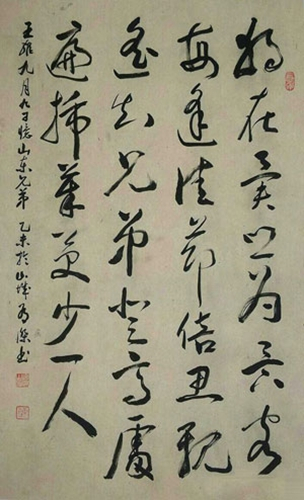 獨在異鄉為異客
每逢佳節倍思親
遙知兄弟登高處
遍插茱萸少一人
王維九月九日憶山東兄弟 乙未於山城書